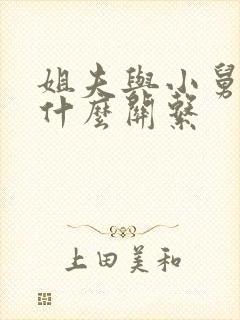 姐夫與小舅
什麼關繫
上田美和